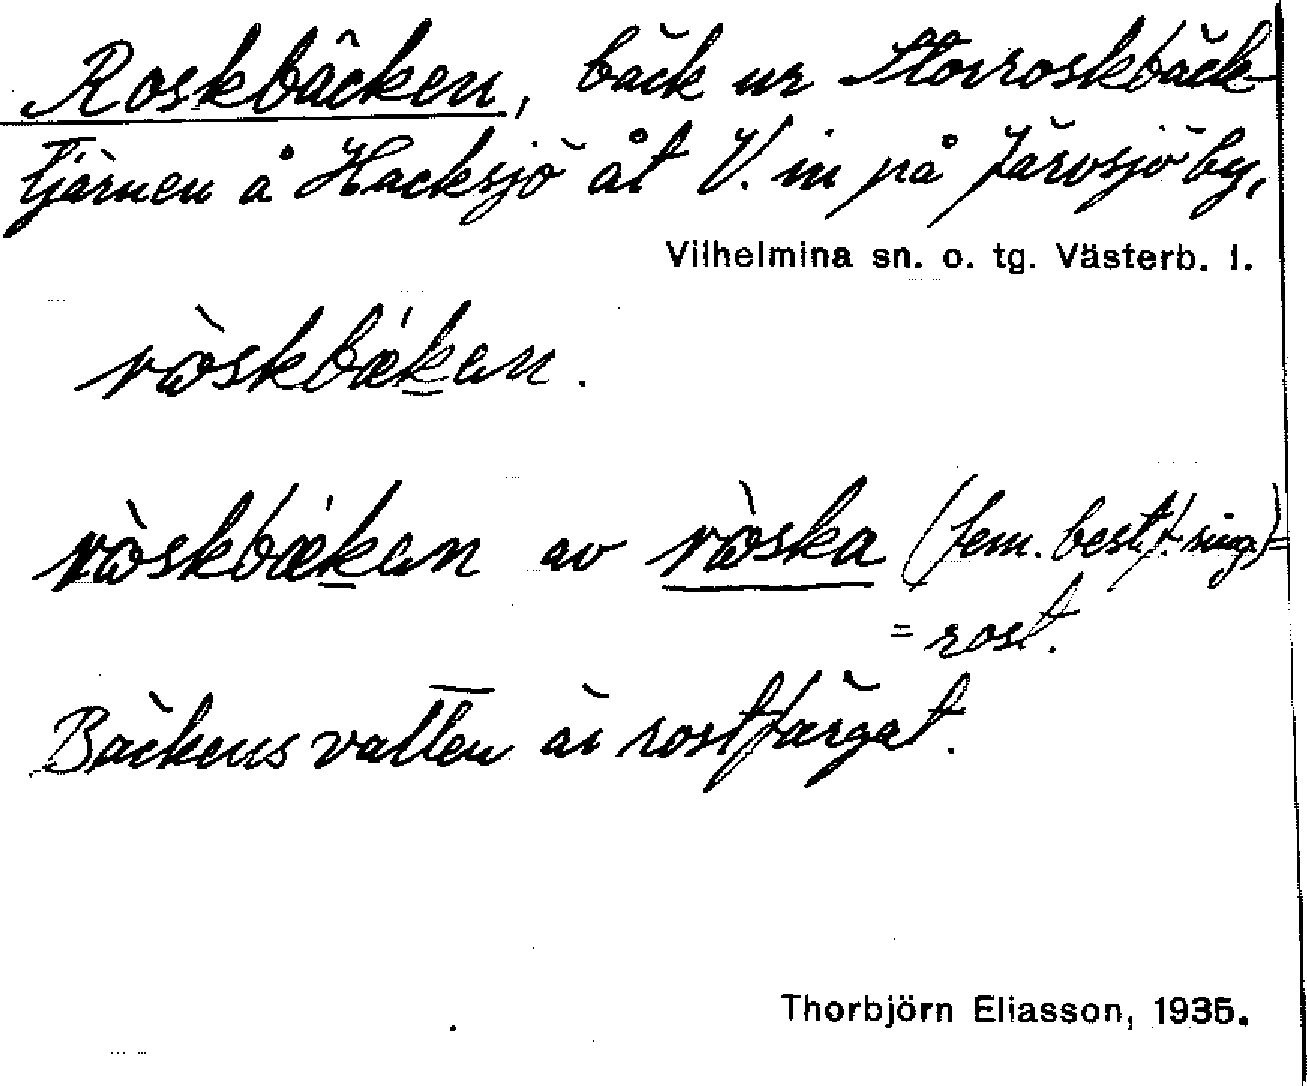 Roskbäcken, bäck ur Storroskbäck-
tjärnen å Hacksjö åt V. in på Järvsjöby,
Vilhelmina sn. o. tg. Västerb. l.
ròskbǽkan.
ròskbǽkan av ròska (fem. best. f. sing.) =
= rost.
Bäckens vatten är rostfärgat.
Thorbjörn Eliasson, 1935.